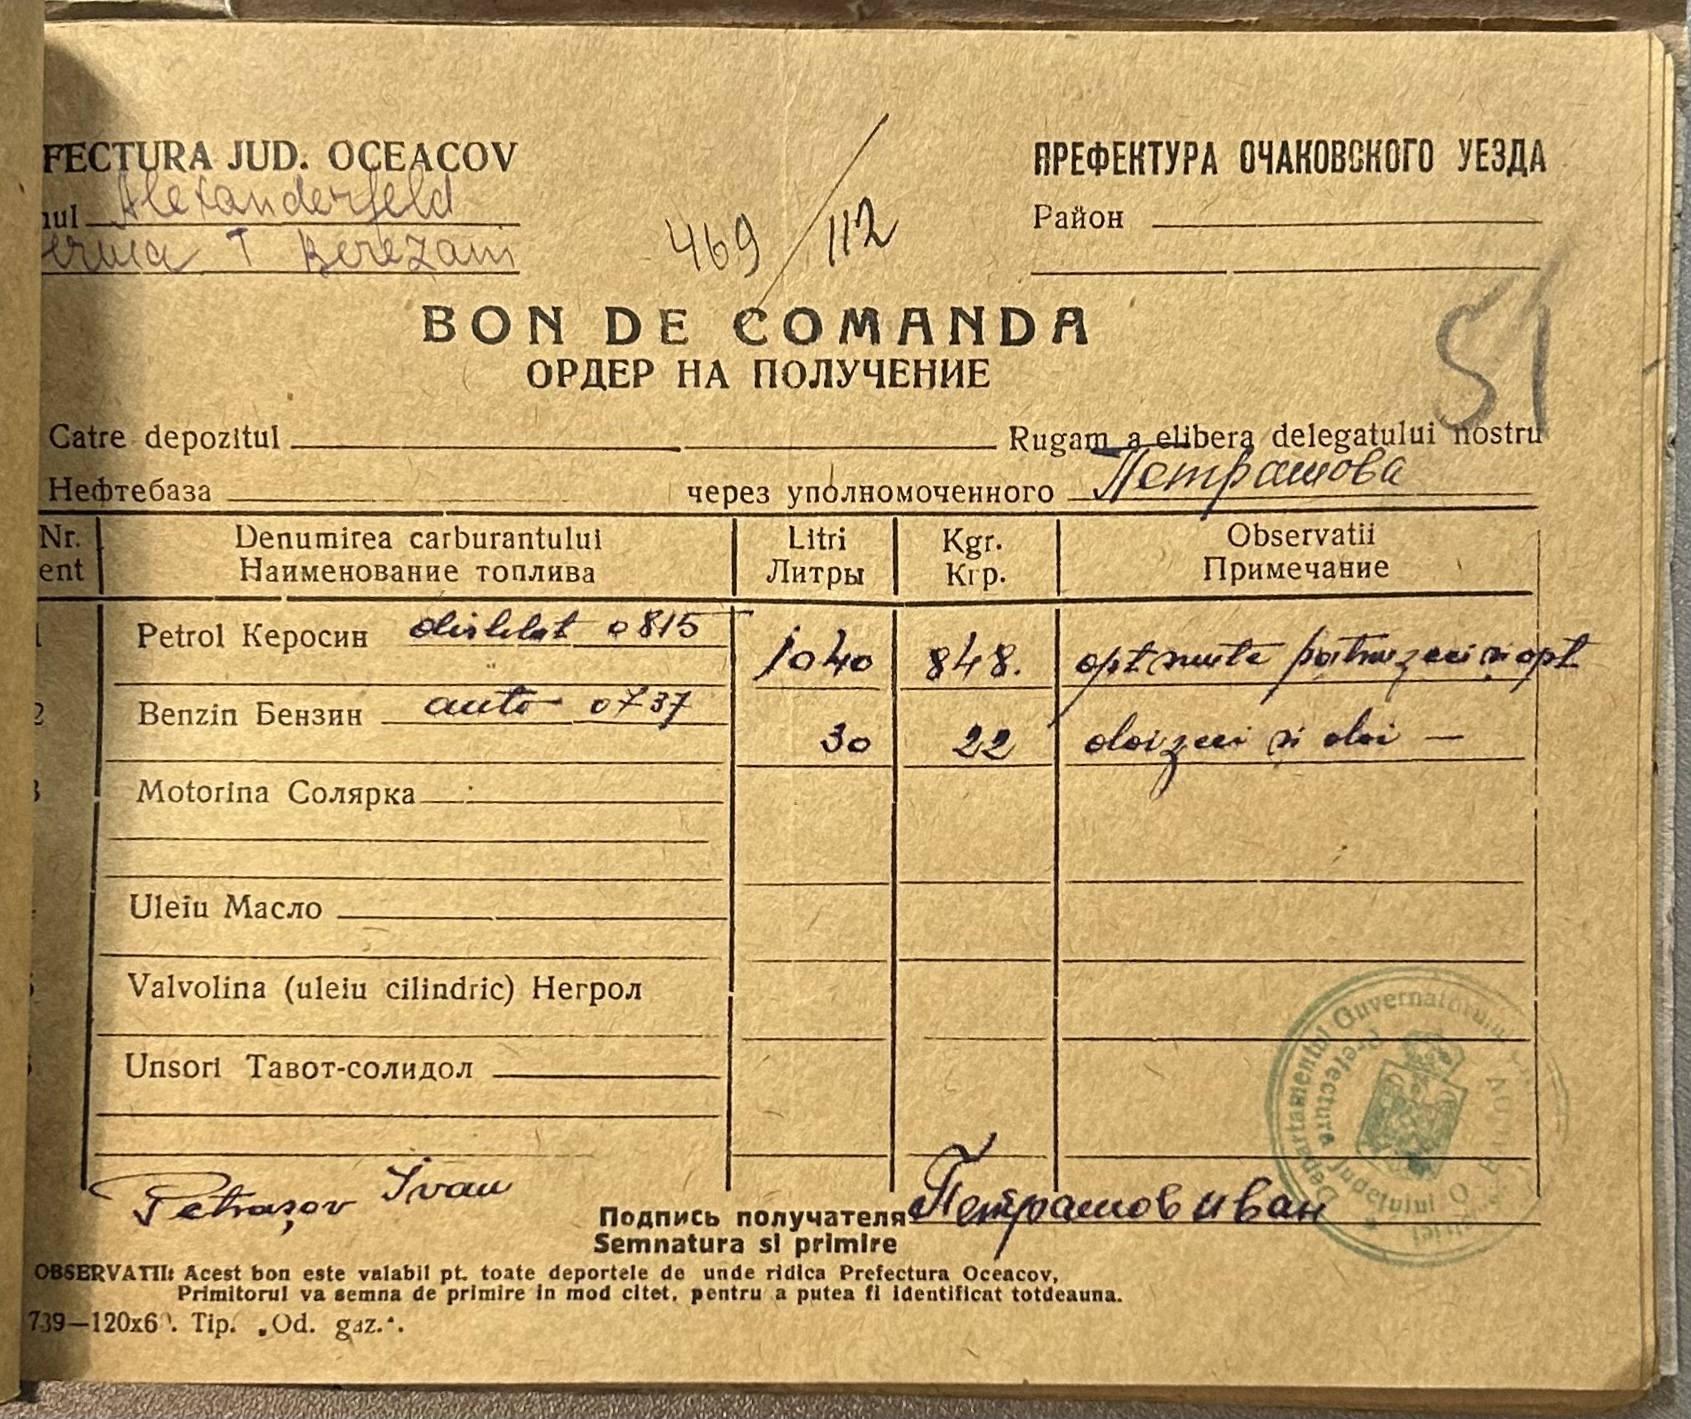 FECTURA JUD. OCEACOV
ПРЕФЕКТУРА ОЧАКОВСКОГО УЕЗДА
nul Alexanderfeld
Район
T Berezani
469/112
BON DE COMANDA
ОРДЕР НА ПОЛУЧЕНИЕ
51
Catre depozitul Rugam a elibera delegatului nostru
Нефтебаза через уполномоченного Петрашова
Nr. Denumirea carburantului Litri Kgr. Observatii
ent Наименование топлива Литры Кгр. Примечание
1 Petrol Керосин 0815 1040 848. opt sute patruzeci si opt
2 Benzin Бензин auto 0737 30 22 doizeci si doi —
3 Motorina Солярка
Uleiu Масло
5 Valvolina (uleiu cilindric) Негрол
Unsori Тавот-солидол
Petrașov Ivan
Подпись получателя Петрашов Иван
Semnatura si primire
Departamentul Guvernatorului
Prefectura Județului O
OBSERVATII: Acest bon este valabil pt. toate deportele de unde ridica Prefectura Oceacov,
Primitorul va semna de primire in mod citet, pentru a putea fi identificat totdeauna.
739—120x6 . Tip. „Od. gaz.".